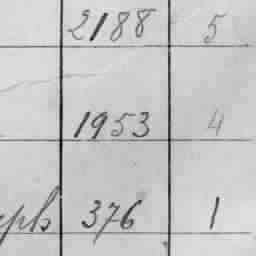 2188 5
1953 4
376 1